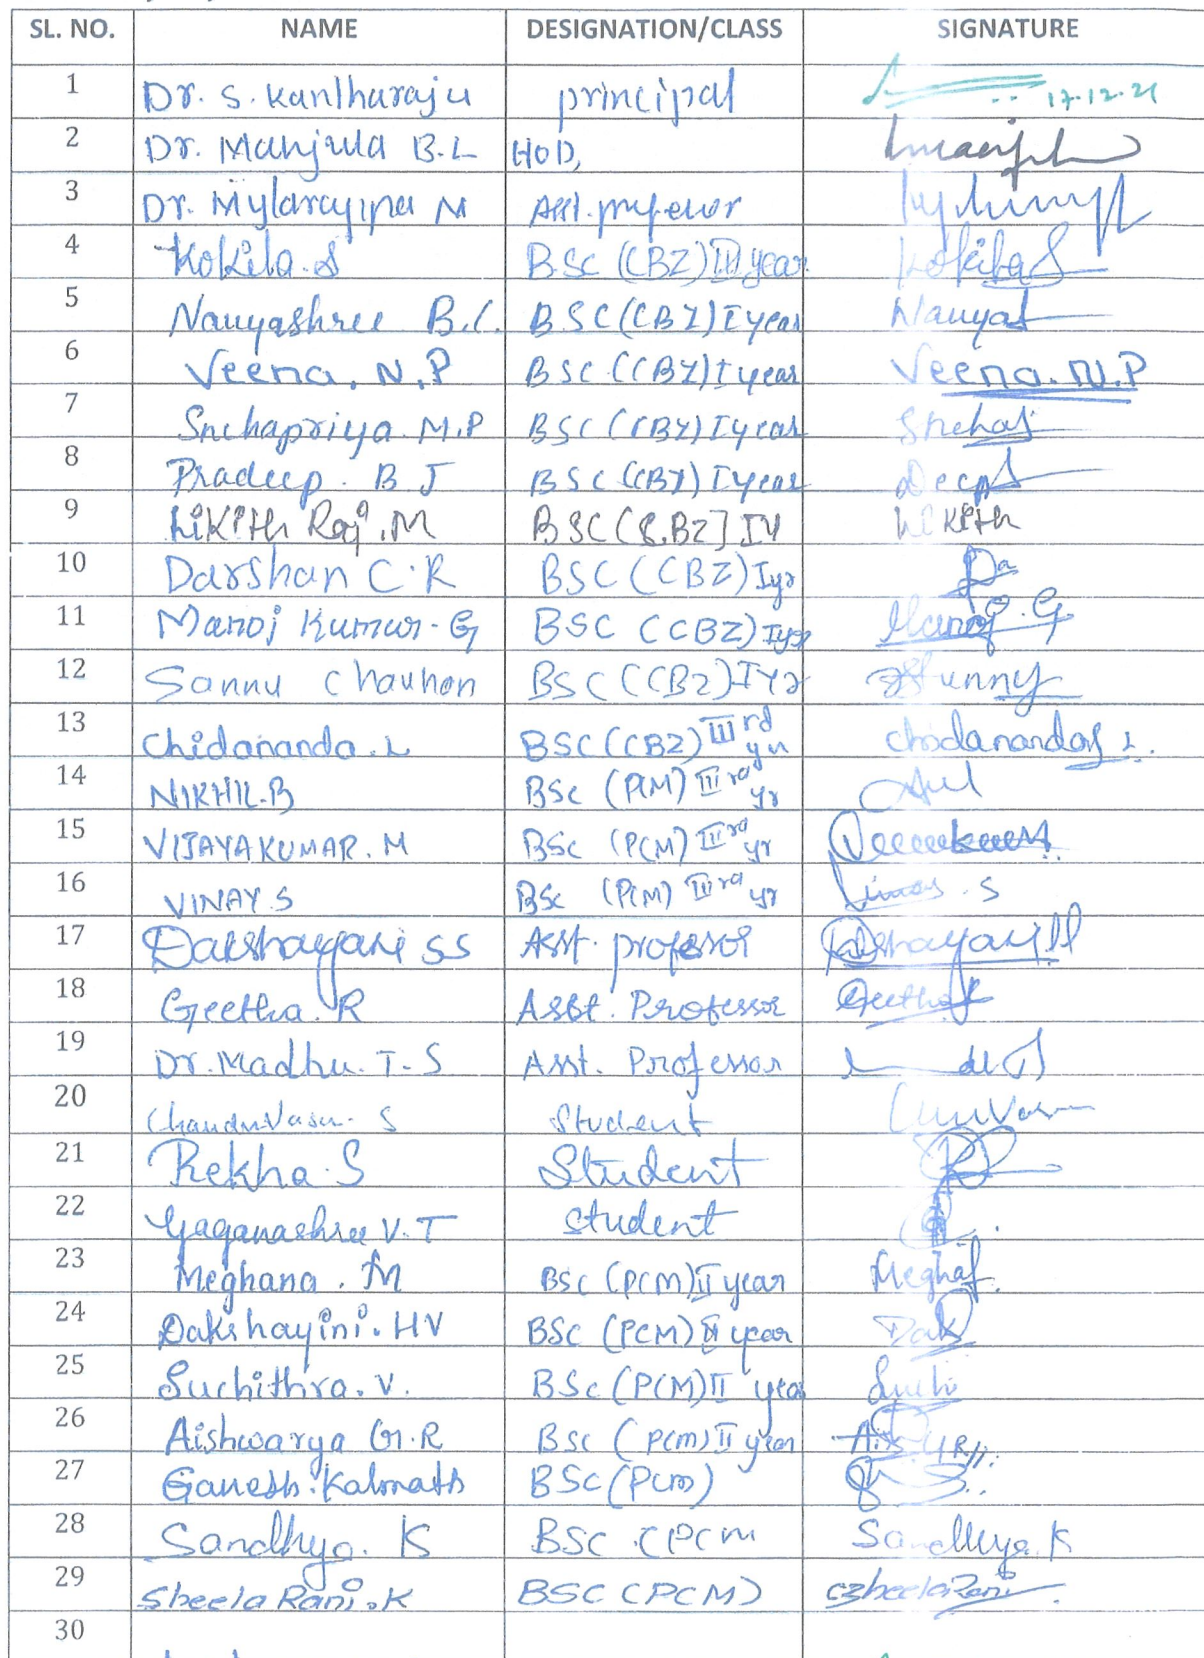 SL. NO. NAME DESIGNATION/CLASS SIGNATURE
1 Dr. S. Kantharaju principal 17-12-21
2 Dr. Manjula B.L HOD,
3 Dr. Mylarappa M Asst. professor
4 Kokila.S BSc (CBZ) III year Kokila S
5 Navyashree B.C. BSC (CBZ) I year Navya
6 Veena. N.P BSC (CBZ) I year Veena. N.P
7 Snehapriya M.P BSC (CBZ) I year Sneha
8 Pradeep. B J BSC (CBZ) I year Deep
9 Likith Raj. M BSC (C.BZ] IY Likith
10 Darshan C.R BSC (CBZ) Iyr
11 Manoj Kumar. G BSC (CBZ) Iyr Manoj. G
12 Sannu Chauhan BSC (CBZ) IYr Sunny
13 Chidananda. L BSC (CBZ) IIIrd yr Chidananda L.
14 NIKHIL.B BSc (PCM) IIIrd yr
15 VIJAYAKUMAR. M BSc (PCM) IIIrd yr
16 VINAY S BSc (PCM) IIIrd yr Vinay. S
17 Dakshayani SS Asst. professor Dakshayani
18 Geetha. R Asst. Professor Geetha
19 Dr. Madhu. T. S Asst. Professor
20 S Student
21 Rekha. S Student
22 Gaganashree V. T student
23 Meghana. M BSc (PCM) II year Megha
24 Dakshayini. HV BSC (PCM) II year Dak
25 Suchithra. V. BSc (PCM) II year Suchi
26 Aishwarya G.R BSc (PCM) II year
27 Ganesh. Kalmath BSc (PCM)
28 Sandhya. K BSC (PCM Sandhya. K
29 Sheela Rani. K BSC (PCM) Sheela Rani
30